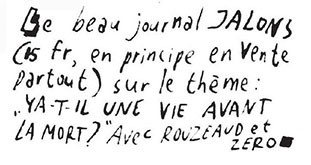 Le beau journal JALONS
(15 fr, en principe en vente
partout) sur le thème :
„YA-T-IL UNE VIE AVANT
LA MORT?" Avec ROUZEAUD et
ZERO